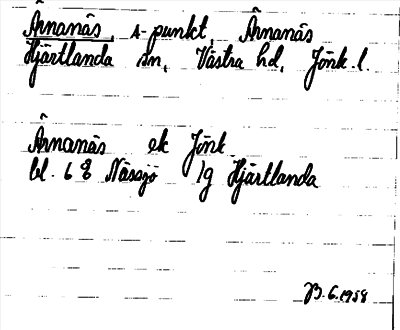 Årnanäs, s-punkt, Årnanäs
Hjärtlanda sn, Västra hd, Jönk. l.
Årnanäs ek Jönk.
bl. 6 8 Nässjö lg Hjärtlanda
B. 6. 1958